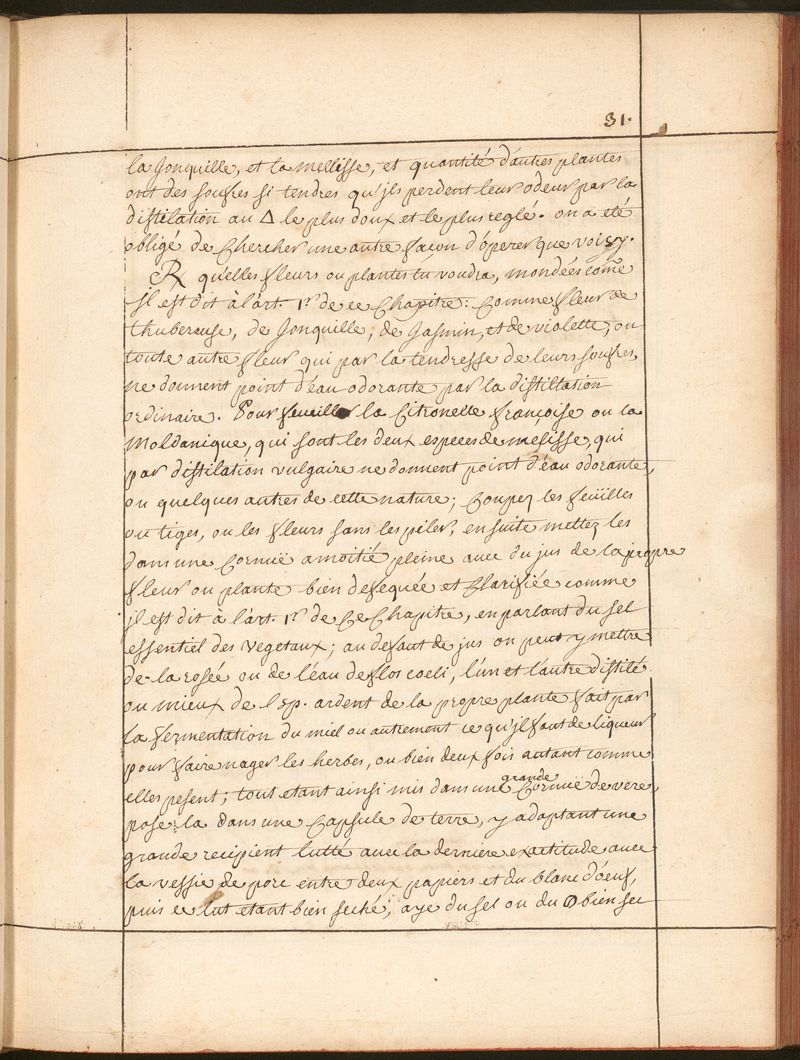 31.
la Jonquille, et la mellisse, et quantité d'autres plantes
ont des soufres si tendres qu'jls perdent leur odeur par la
distilation au △ le plus doux et le plus reglé. on a été
obligé de Chercher une autre façon d'óperer que voisy.
℞ qu'elles fleurs ou plantes tu voudra, mondées com̄e
jl est dit à l'árt. 1.er de ce Chapitre: Comme fleur de
thubereuse, de Jonquille, de Jasmin, et de violette, ou
toute autre fleur qui par la tendresse de leurs soufres
ne donnent point d'éau odorante par la distillation
ordinaire. Pour feuille la Citronelle françoise ou la
Moldanique, qui sont les deux especes de melisse, qui
par distilation vulgaire ne donnent point d'éau odorante,
ou quelques autres de cette nature; Coupez les feüilles
ou tiges, ou les fleurs sans les piler, ensuite mettez les
dans une Cornuë a moitié pleine avec du jus de la propre
fleur ou plante bien defequée et Clarifiée comme
jl est dit à l'árt. 1.er de Ce Chapitre, en parlant du sel
essentiel des Vegetaux; au defaut de jus on peut y mettre
de la rosée ou de l'éau de flos coeli, l'un et l'autre distilé
ou mieux de l'esp. ardent de la propre plante fait par
la fermentation du miel ou autrement ce qu'jl faut de liqueur
pour faire nager les herbes, ou bien deux fois autant comme
elles pesent; tout etant ainsi mis dans une grande Cornuë de vere,
pose la dans une Capsule de terre, y adaptant une
grande recipient lutté avec la derniere exactitude avec
la vessie de porc entre deux papiers et du blanc d'oeuf,
puis ce lut etant bien seché, aye du sel ou du bien sec